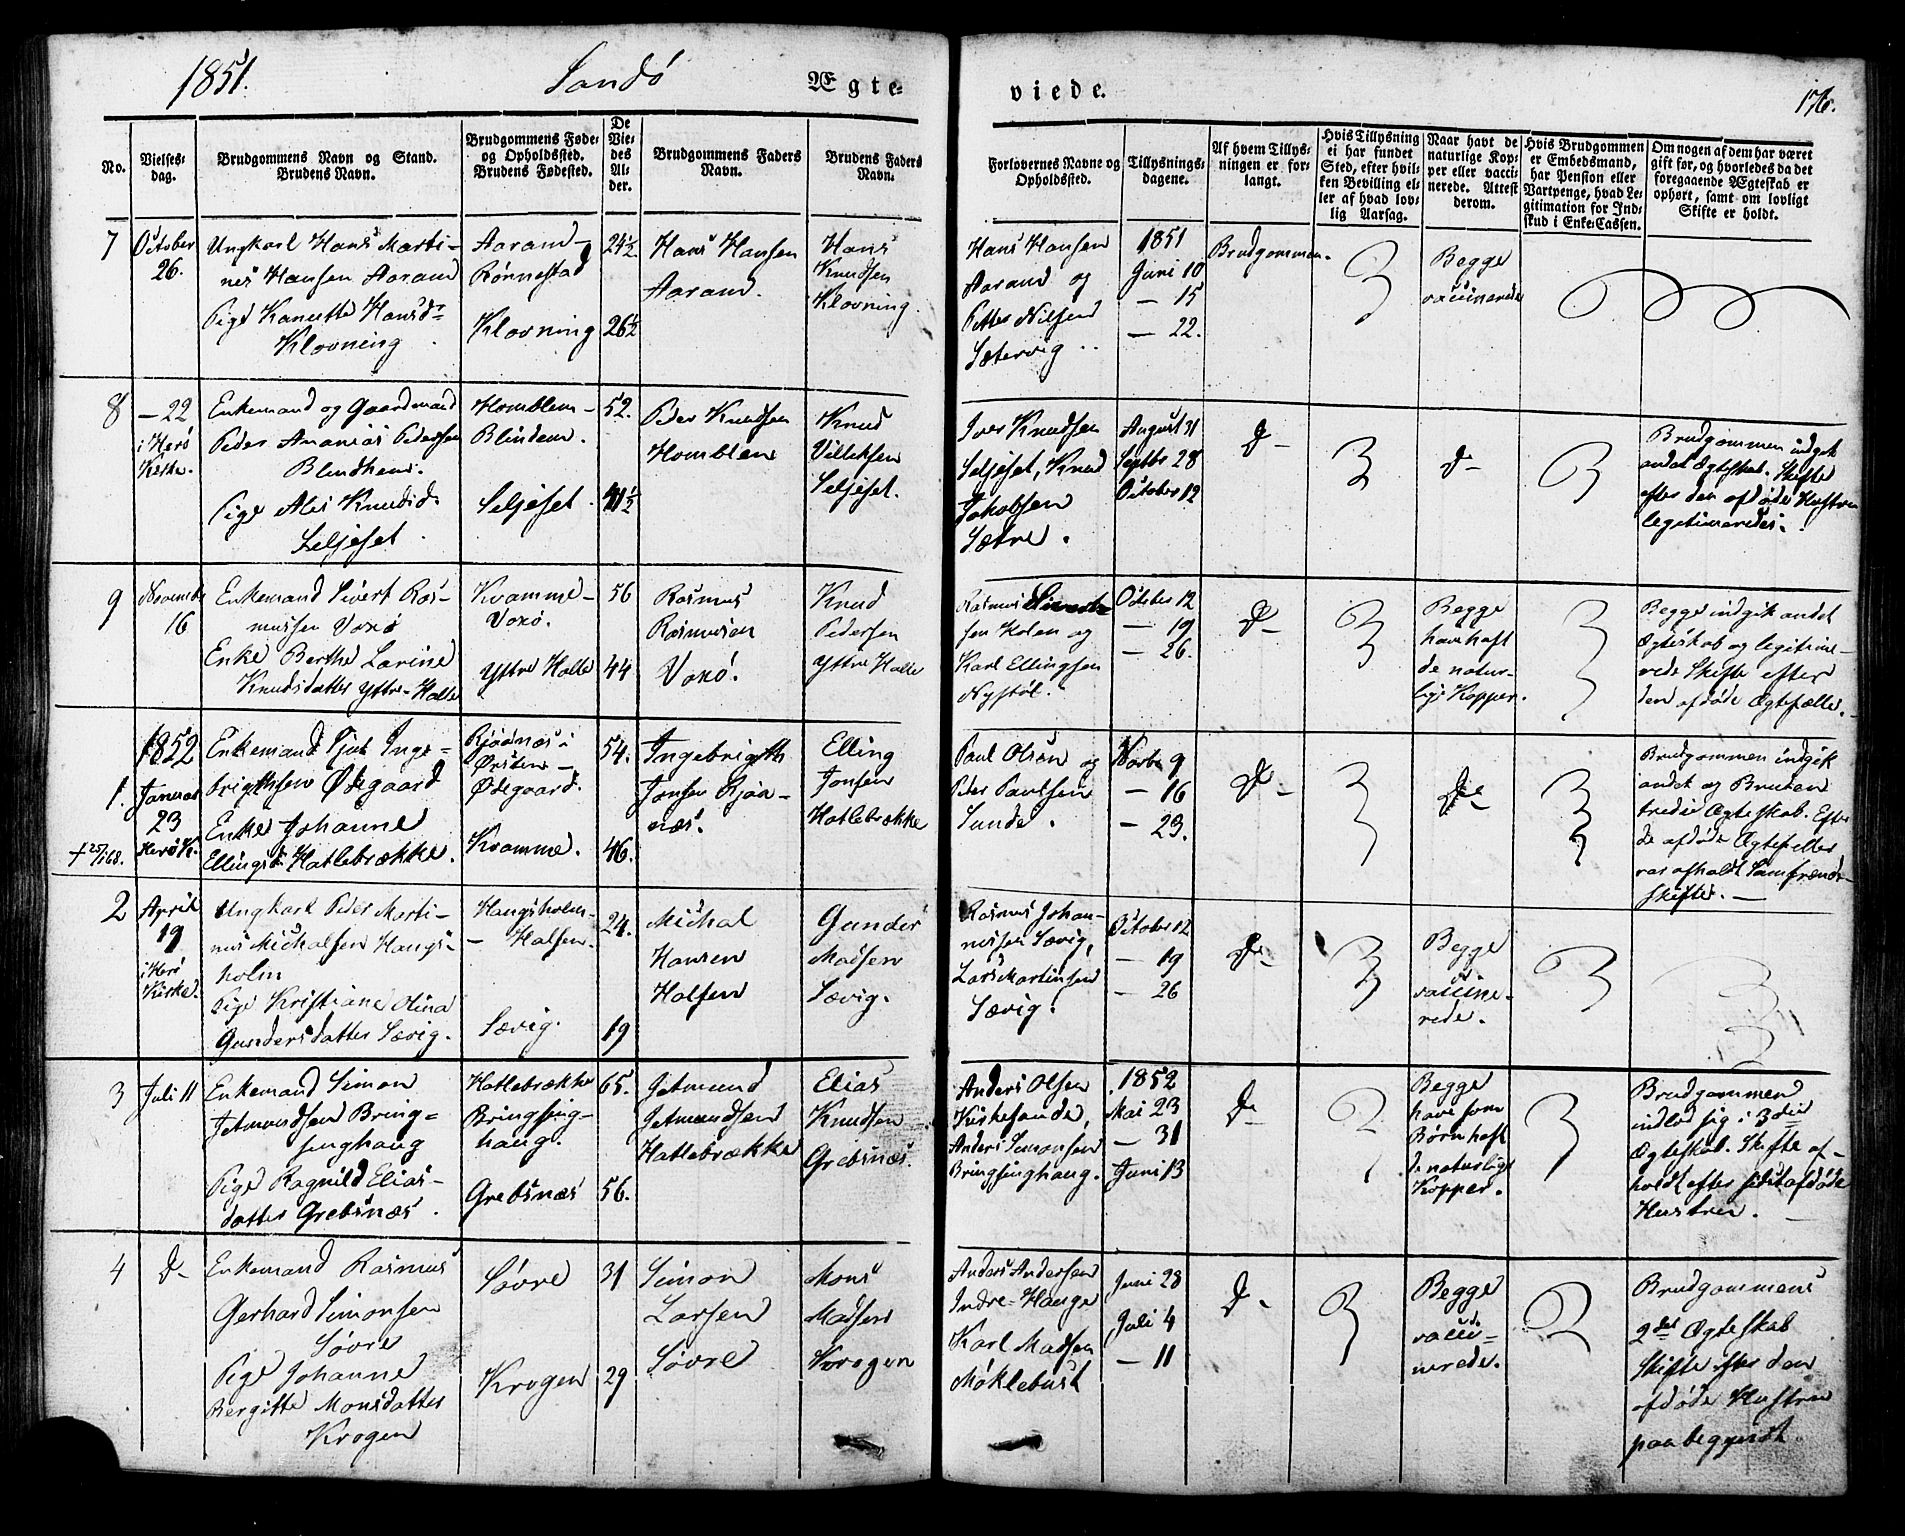 1851.
Sandö
Ægte-
viede.
176.
No.
Vielses-
dag.
Brudgommens Navn og Stand.
Brudens Navn.
Brudgommens Føde-
og Opholdssted.
Brudens Fødested.
De
Vie-
des
Al-
der.
Brudgommens Faders
Navn.
Brudens Faders
Navn.
Forlovernes Navne og
Opholdssted.
Tillysnings-
dagene.
Af hvem Tillys-
ningen er for-
langt.
Hvis Tillysning
ei har fundet
Sted, efter hvil-
ken Bevilling el-
ler af hvad lov-
lig Aarsag.
Naar havt de
naturlige Kop-
per eller vacci-
nerede. Attest
derom.
Hvis Brudgommen
er Embedsmand,
har Pension eller
Vartpenge, hvad Le-
gitimation for Ind-
skud i Enke-Cassen.
Om nogen af dem har været
gift før, og hvorledes da det
foregaaende Ægteskab er
ophørt, samt om lovligt
Skifte er holdt.
7
October
26.
Ungkarl Hans Marti-
nus Hansen Aarand
Pige Kanutte Hansd-
Klovning
Aarand-
Rönnestad
Klovning
24½
26½
Hans Hansen
Aarand.
Hans
Knudsen
Klovning.
Hans Hansen
Aarand og
Petter Nilsen
Sætervig
1851
Juni 10
— 15
— 22.
Brudgommen.
Begge
vaccinerede
8
— 22
i Herö
Kirke.
Enkemand og Gaardmand
Peder Ananias Pedersen
Blindhem.
Pige Ales Knudsd.
Seljeset.
Homblem-
Blindem.
Seljeset.
52.
41½
Peder Knudsen
Homblem
Knud
Villeksen
Seljeset.
Iver Knudsen
Seljeset, Knud
Jakobsen
Sætre.
August 31
Septbr 28
October 12
D-
D-
Brudgommen indgik
andet Ægteskab. Skifte
efter den afdöde Hustru
legitimeredes.
9
Novembr
16
Enkemand Sivert Ras-
mussen Voxö
Enke Berthe Larine
Knudsdatter Yttre-Holle
Kvamme-
Voxö.
Yttre Holle
56
44
Rasmus
Rasmusen
Voxö.
Knud
Pedersen
Yttre Holle
Rasmus Sivert-
sen Holen og
Karl Ellingsen
Nystöl.
October 12
— 19
— 26.
D-
Begge
have haft
de natur-
lige Kopper.
Begge indgik andet
Ægteskab og legitime-
rede Skifte efter
den afdöde Ægtefælle.
1852
1.
Januar
23
Herö K.
+ 25/1 68.
Enkemand Sjut Inge-
brigthsen Ödegaard
Enke Johanne
Ellingsd. Hatlebrække.
Rjåånæs i
Örsten-
Ödegaard.
Kvamme.
54.
46.
Ingebrigth
Jonsen Rjåå-
næs.
Elling
Jonsen
Hatlebrække
Paul Olsen og
Peder Paulsen
Sunde.
Novbr 9
— 16
— 23.
D-
D-
Brudgommen indgik
andet og Bruden
tredie Ægteskab. Efter
de afdöde Ægtefæller
var afholdt Samfrænde-
skifter.
2
April
19
i Herö
Kirke.
Ungkarl Peder Marti-
nus Michalsen Haugs-
holm
Pige Kristiane Olina
Gundersdatter Sævig.
Haugsholm-
- Halsen.
Sævig.
24.
19
Michal
Hansen
Halsen
Gunder
Madsen
Sævig.
Rasmus Johan-
nessen Sævig,
Lars Martinsen
Sævig.
October 12
— 19
— 26
D-
Begge
vaccine-
rede.
3
Juli 11
Enkemand Simon
Jetmundsen Bring-
singhaug
Pige Ragnild Elias-
datter Grebsnæs.
Hatlebrække
Bringsing-
haug.
Grebsnæs
65.
56.
Jetmund
Jetmundsen
Hatlebrække
Elias
Knudsen
Grebsnæs.
Anders Olsen
Kirkesande,
Anders Simonsen
Bringsinghaug.
1852
Mai 23
— 31
Juni 13
D-
Begge
have som
Börn haft
de naturlige
Kopper.
Brudgommen
indlod sig i 3die
Ægteskab. Skifte af-
holdt efter sidst afdöde
Hustru.
4
D-
Enkemand Rasmus
Gerhard Simonsen
Sövre
Pige Johanne
Bergitte Monsdatter
Krogen
Sövre
Krogen
31
29
Simon
Larsen
Sövre
Mons
Madsen
Krogen
Anders Andersen
Indre-Hauge
Karl Madsen
Möklebust
Juni 28
Juli 4
— 11
D-
Begge
vacci-
nerede.
Brudgommens
2det Ægteskab
Skifte efter den
afdöde Hustru
paabegyndt.